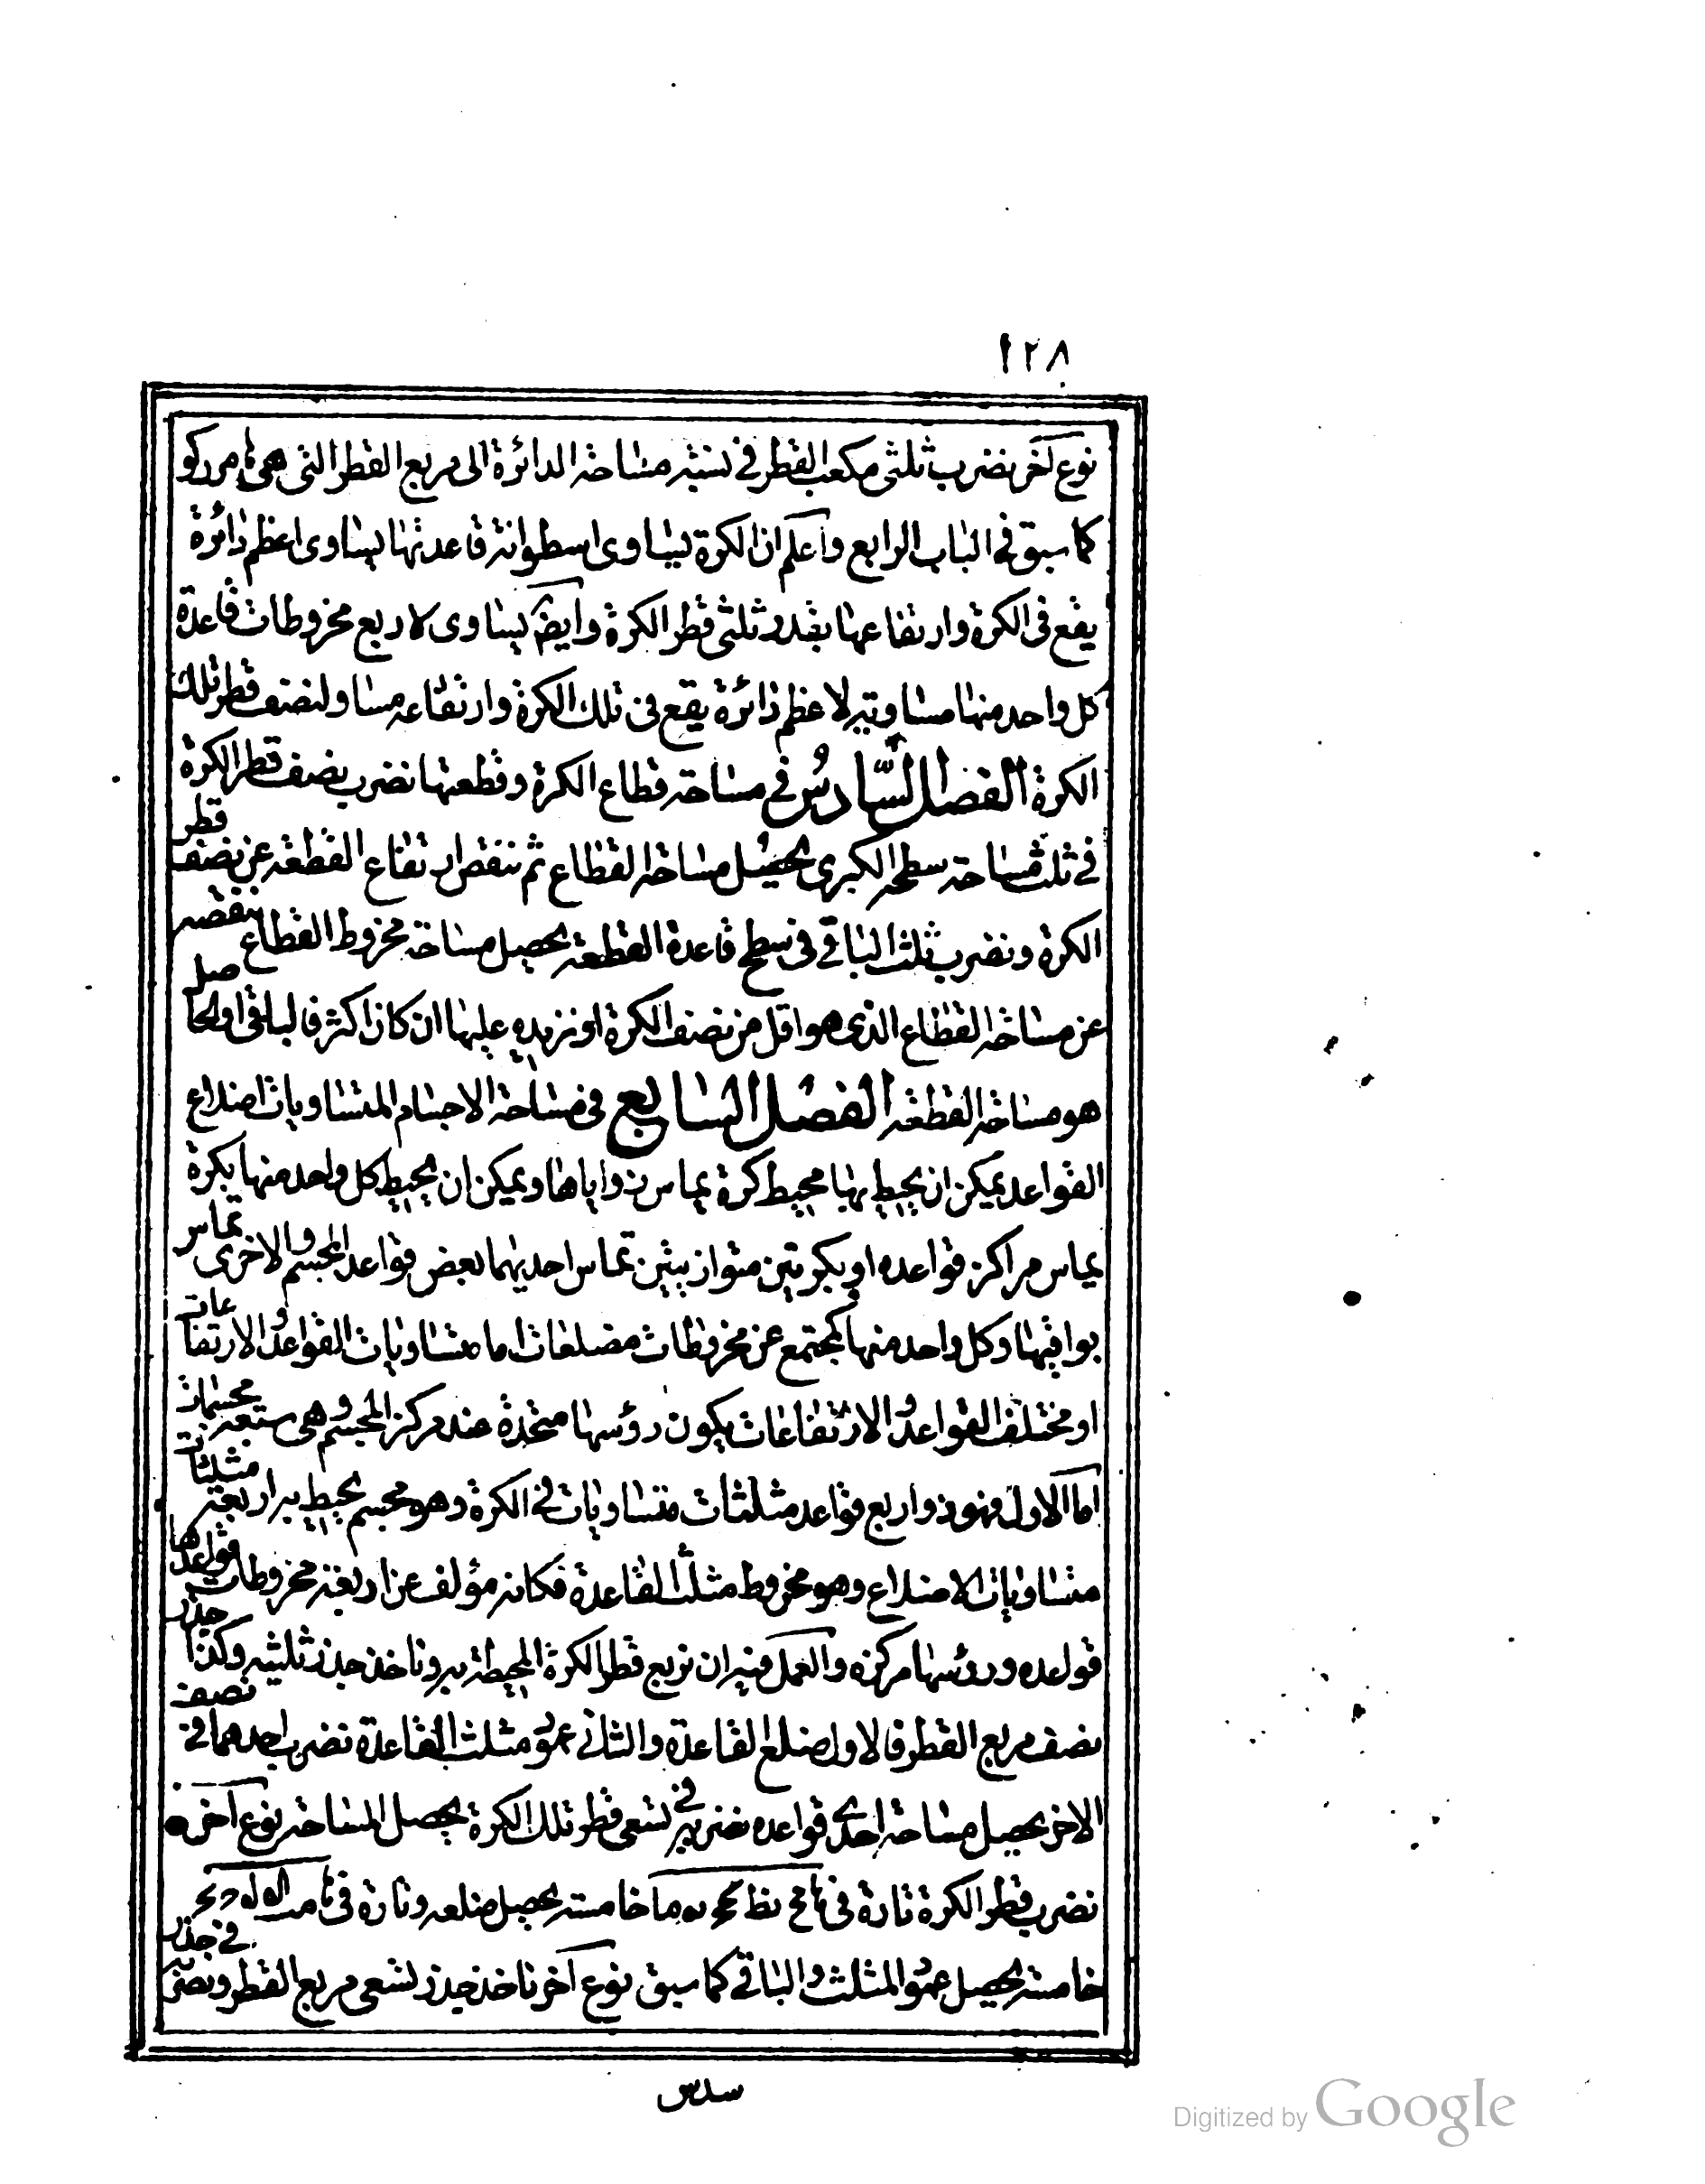 ١٢٨
نوع آخر نضرب ثلثى مكعب القطر فى نسبة مساحة الدائرة الى مربع القطر التى هى
كما سبق فى الباب الرابع واعلم ان الكرة يساوى اسطوانة قاعدتها يساوى اعظم دائرة
يقع فى الكرة وارتفاعها بقدر ثلثى قطر الكرة وايضً يساوى لاربع مخروطات قاعدة
كل واحد منها مساوية لاعظم دائرة يقع فى تلك الكرة وارتفاعه مساو لنصف قطر تلك
الكرة الفصل السّادسُ فى مساحة قطاع الكرة وقطعتها نضرب نصف قطر الكرة
فى ثلث مساحة سطحه الكبرى يحصل مساحة القطاع ثم ننقص ارتفاع القطعة عن نصف قطر
الكرة ونضرب ثلث الباقى فى سطح قاعدة القطعة يحصل مساحة مخروط القطاع ننقصه
عن مساحة القطاع الذى هو اقل من نصف الكرة او نزيده عليها ان كان اكثر فالباقى او الحاصل
هو مساحة القطعة الفصل السابع فى مساحة الاجسام المتساويات اضلاع
القواعد يمكن ان يحيط بها محيط كرة يماس زواياها ويمكن ان يحيط كل واحد منها بكرة
يماس مراكز قواعده او بكرتين متوازيتين تماس احديهما بعض قواعد المجسم والاخرى تماس
بواقيها وكل واحد منها يجتمع عن مخروطات مضلعات اما متساويات القواعد والارتفاعات
او مختلف القواعد والارتفاعات يكون رؤسها متحدة عند مركز المجسم وهى سبعة مجسمات
اما الاول فهو ذو اربع قواعد مثلثات متساويات فى الكرة وهو مجسم يحيط به اربعة مثلثات
متساويات الاضلاع وهو مخروط مثلث القاعدة فكانه مؤلف عن اربعة مخروطات قواعدها
قواعده ورؤسها مركزه والعمل فيه ان نربع قطر الكرة المحيطة به وناخذ جذر ثلثيه وكذا جذر
نصف مربع القطر فالاول ضلع القاعدة والثانى عمود مثلث القاعدة نضرب احدهما فى نصف
الاخر يحصل مساحة احدى قواعده نضربه فى تسعى قطر تلك الكرة يحصل المساحة نوع آخر
نضرب قطر الكرة تارة فى خامسة يحصل ضلعه وتارة فى
خامسة يحصل عمود المثلث والباقى كما سبق نوع آخر ناخذ جذر تسعى مربع القطر ونضربه فى جذر
سدس
Digitized by Google